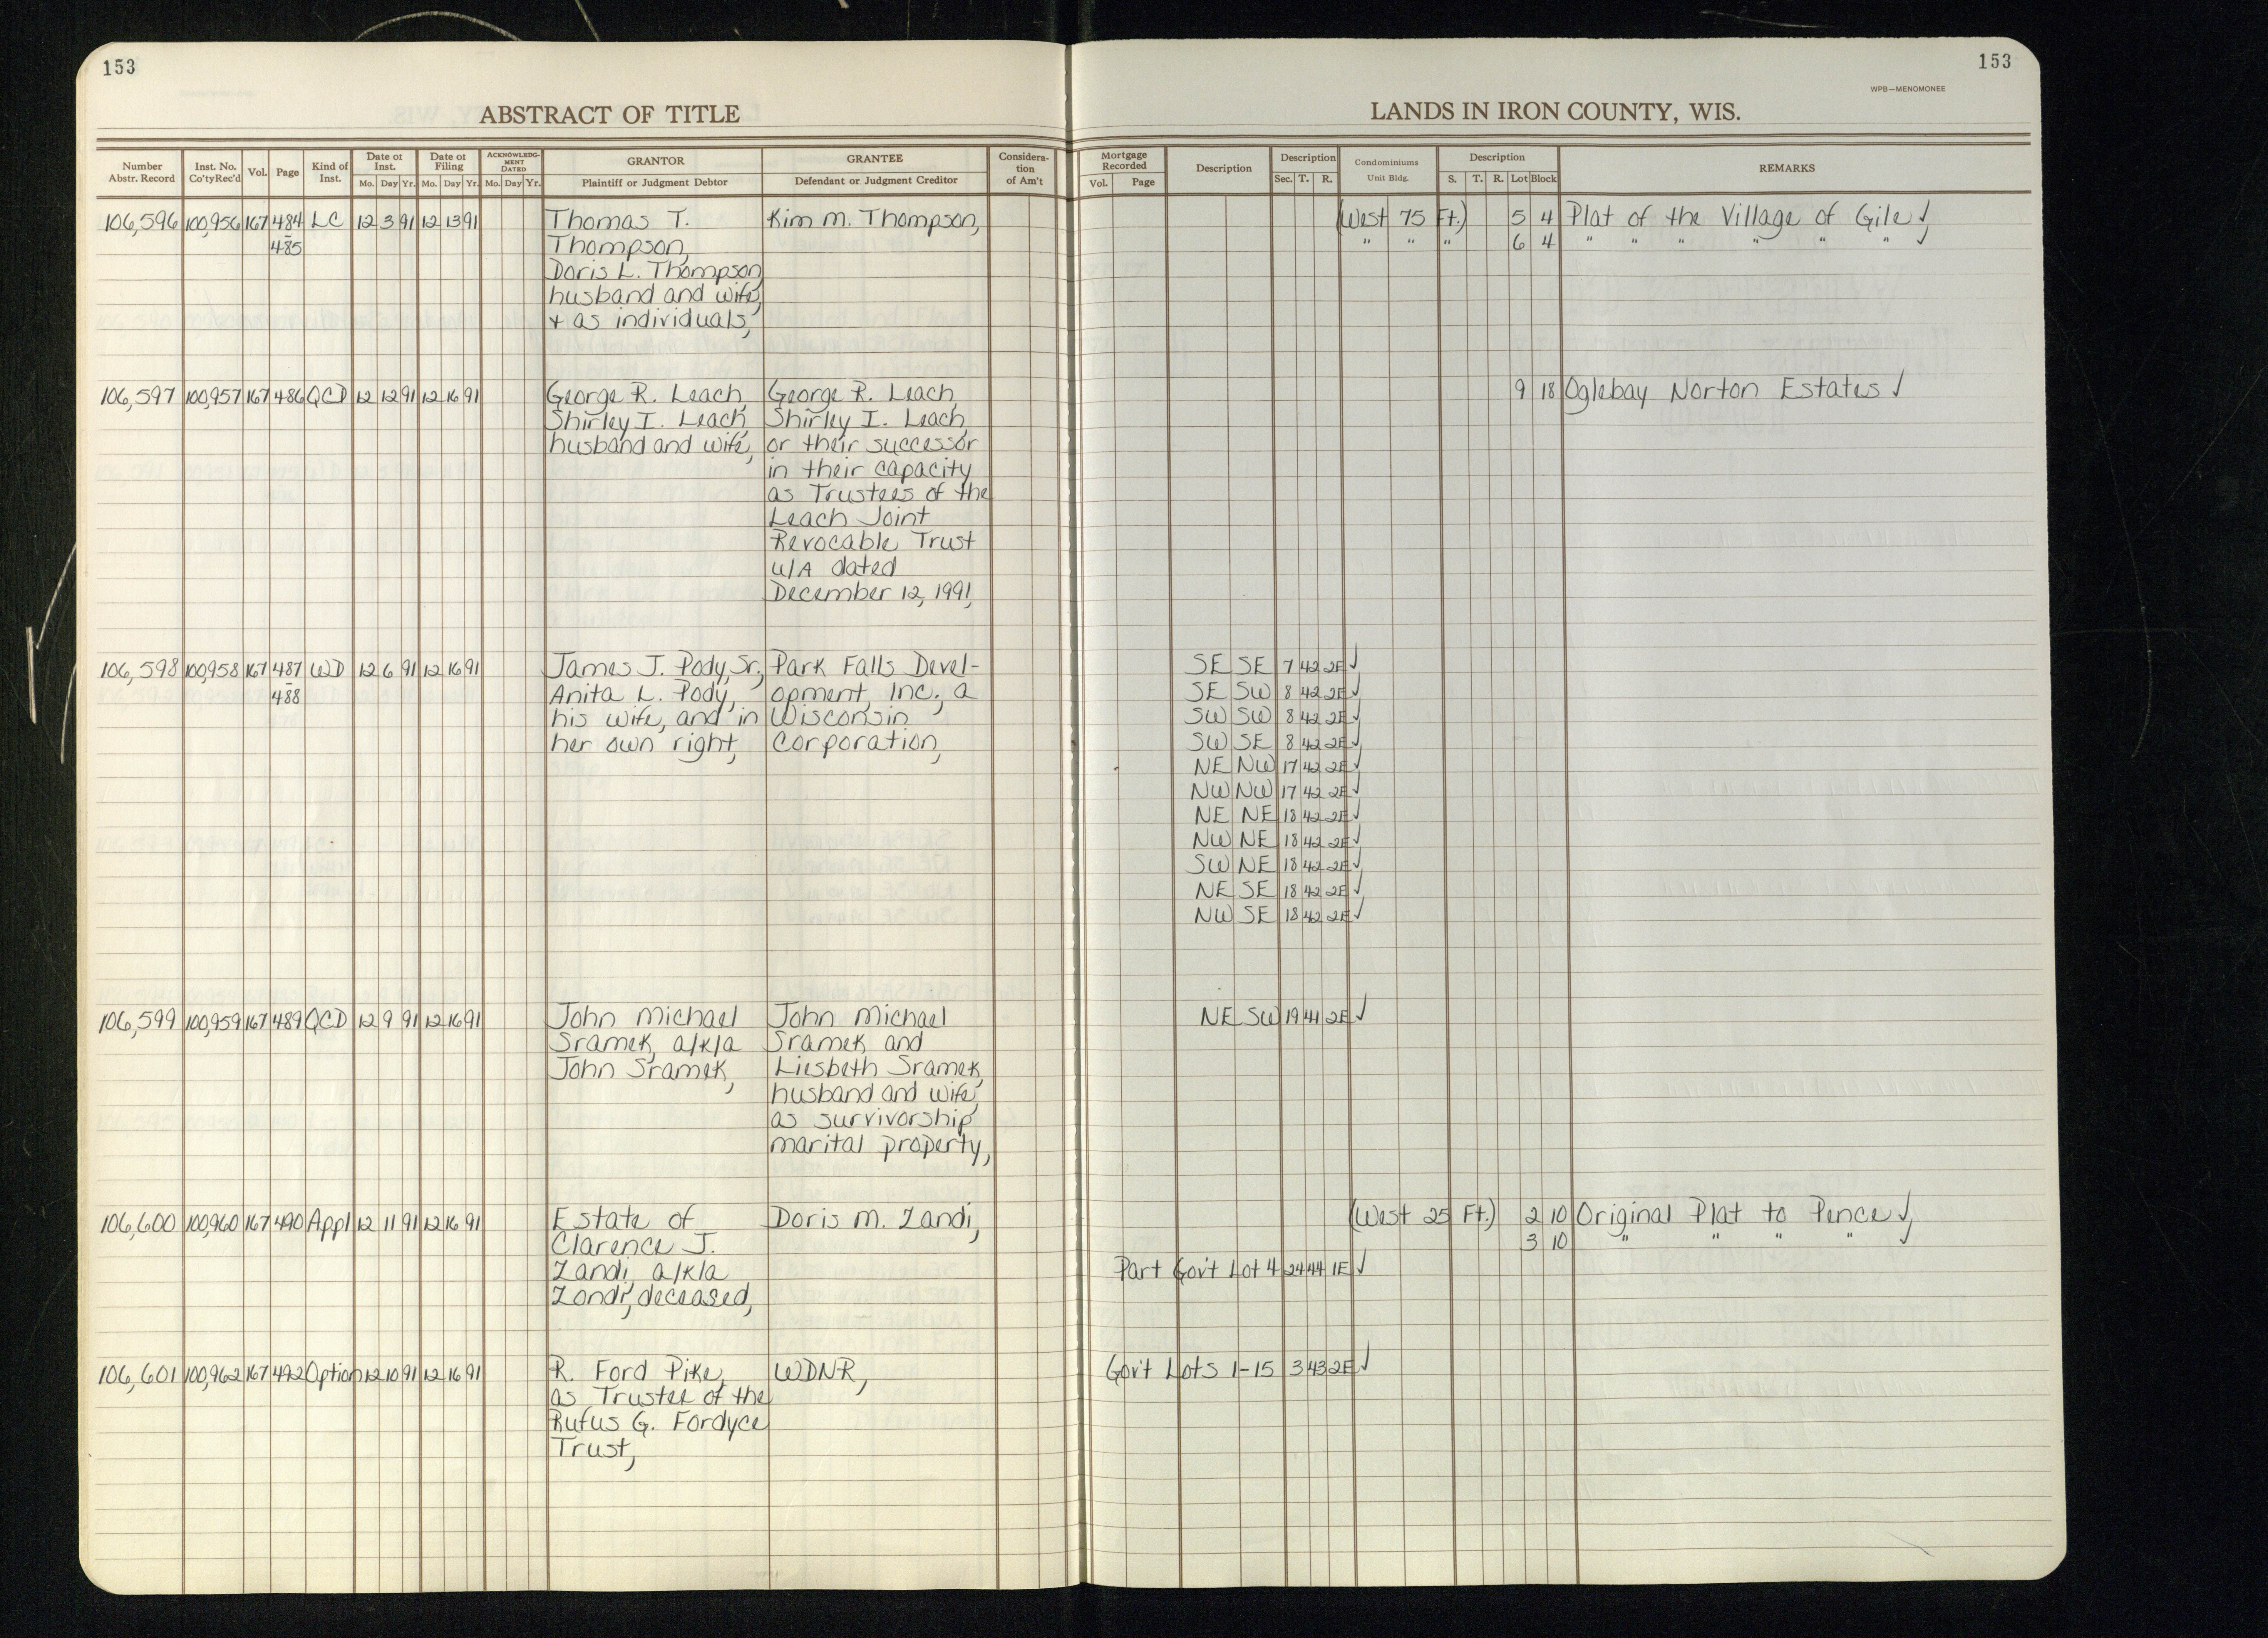 153
153
WPB—MENOMONEE
ABSTRACT OF TITLE
LANDS IN IRON COUNTY, WIS.
Number Abstr. Record | Inst. No. Co'ty Rec'd | Vol. | Page | Kind of Inst. | Date of Inst. Mo. Day Yr. | Date of Filing Mo. Day Yr. | ACKNOWLEDGMENT DATED Mo. Day Yr. | GRANTOR Plaintiff or Judgment Debtor | GRANTEE Defendant or Judgment Creditor | Consideration of Am't | Mortgage Recorded Vol. Page | Description | Description Sec. T. R. | Condominiums Unit Bldg. | Description S. T. R. Lot Block | REMARKS
106,596 100,956 167 484 LC 12 3 91 12 13 91 Thomas T. Kim M. Thompson, (West 75 Ft.) 5 4 Plat of the Village of Gile ✓,
- 485 Thompson, " " " 6 4 " " " " " " ✓
Doris L. Thompson,
husband and wife,
+ as individuals,
106,597 100,957 167 486 QCD 12 12 91 12 16 91 George R. Leach, George R. Leach, 9 18 Oglebay Norton Estates ✓
Shirley I. Leach, Shirley I. Leach,
husband and wife, or their successor
in their capacity
as Trustees of the
Leach Joint
Revocable Trust
u/A dated
December 12, 1991,
106,598 100,958 167 487 WD 12 6 91 12 16 91 James J. Pody, Sr., Park Falls Devel- SE SE 7 42 2E ✓
- 488 Anita L. Pody, opment, Inc., a SE SW 8 42 2E ✓
his wife, and in Wisconsin SW SW 8 42 2E ✓
her own right, Corporation, SW SE 8 42 2E ✓
NE NW 17 42 2E ✓
NW NW 17 42 2E ✓
NE NE 18 42 2E ✓
NW NE 18 42 2E ✓
SW NE 18 42 2E ✓
NE SE 18 42 2E ✓
NW SE 18 42 2E ✓
106,599 100,959 167 489 QCD 12 9 91 12 16 91 John Michael John Michael NE SW 19 41 2E ✓
Sramek, a/k/a Sramek and
John Sramek, Liesbeth Sramek,
husband and wife,
as survivorship
marital property,
106,600 100,960 167 490 Appl 12 11 91 12 16 91 Estate of Doris M. Zandi, (West 25 Ft.) 2 10 Original Plat to Pence ✓,
Clarence J. 3 10 " " " " ✓
Zandi, a/k/a Part Gov't Lot 4 24 44 1E ✓
Zondi, deceased,
106,601 100,962 167 492 Option 12 10 91 12 16 91 R. Ford Pike, WDNR, Gov't Lots 1-15 3 43 2E ✓
as Trustee of the
Rufus G. Fordyce
Trust,